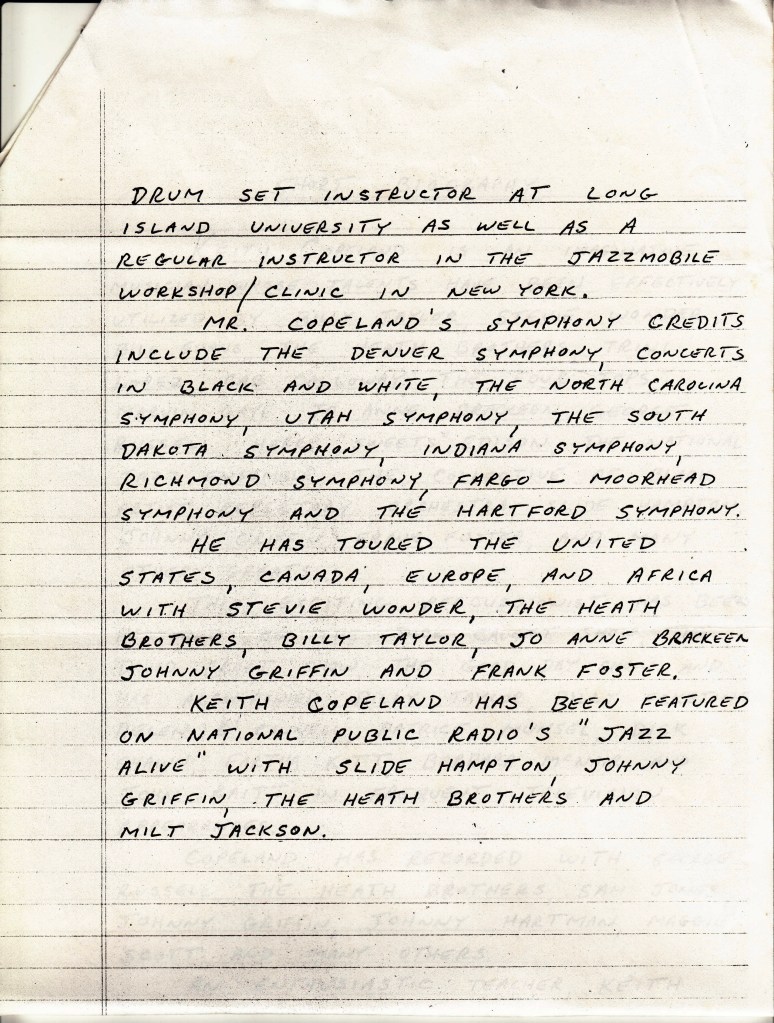 DRUM SET INSTRUCTOR AT LONG
ISLAND UNIVERSITY AS WELL AS A
REGULAR INSTRUCTOR IN THE JAZZMOBILE
WORKSHOP/CLINIC IN NEW YORK.
MR. COPELAND'S SYMPHONY CREDITS
INCLUDE THE DENVER SYMPHONY, CONCERTS
IN BLACK AND WHITE, THE NORTH CAROLINA
SYMPHONY, UTAH SYMPHONY, THE SOUTH
DAKOTA SYMPHONY, INDIANA SYMPHONY,
RICHMOND SYMPHONY, FARGO - MOORHEAD
SYMPHONY AND THE HARTFORD SYMPHONY.
HE HAS TOURED THE UNITED
STATES, CANADA, EUROPE, AND AFRICA
WITH STEVIE WONDER, THE HEATH
BROTHERS, BILLY TAYLOR, JO ANNE BRACKEEN
JOHNNY GRIFFIN AND FRANK FOSTER.
KEITH COPELAND HAS BEEN FEATURED
ON NATIONAL PUBLIC RADIO'S "JAZZ
ALIVE" WITH SLIDE HAMPTON, JOHNNY
GRIFFIN, THE HEATH BROTHERS AND
MILT JACKSON.
COPELAND HAS RECORDED WITH GEORGE
RUSSELL, THE HEATH BROTHERS, SAM JONES
JOHNNY GRIFFIN, JOHNNY HARTMAN,
SCOTT AND MANY OTHERS
AN ENTHUSIASTIC TEACHER KEITH